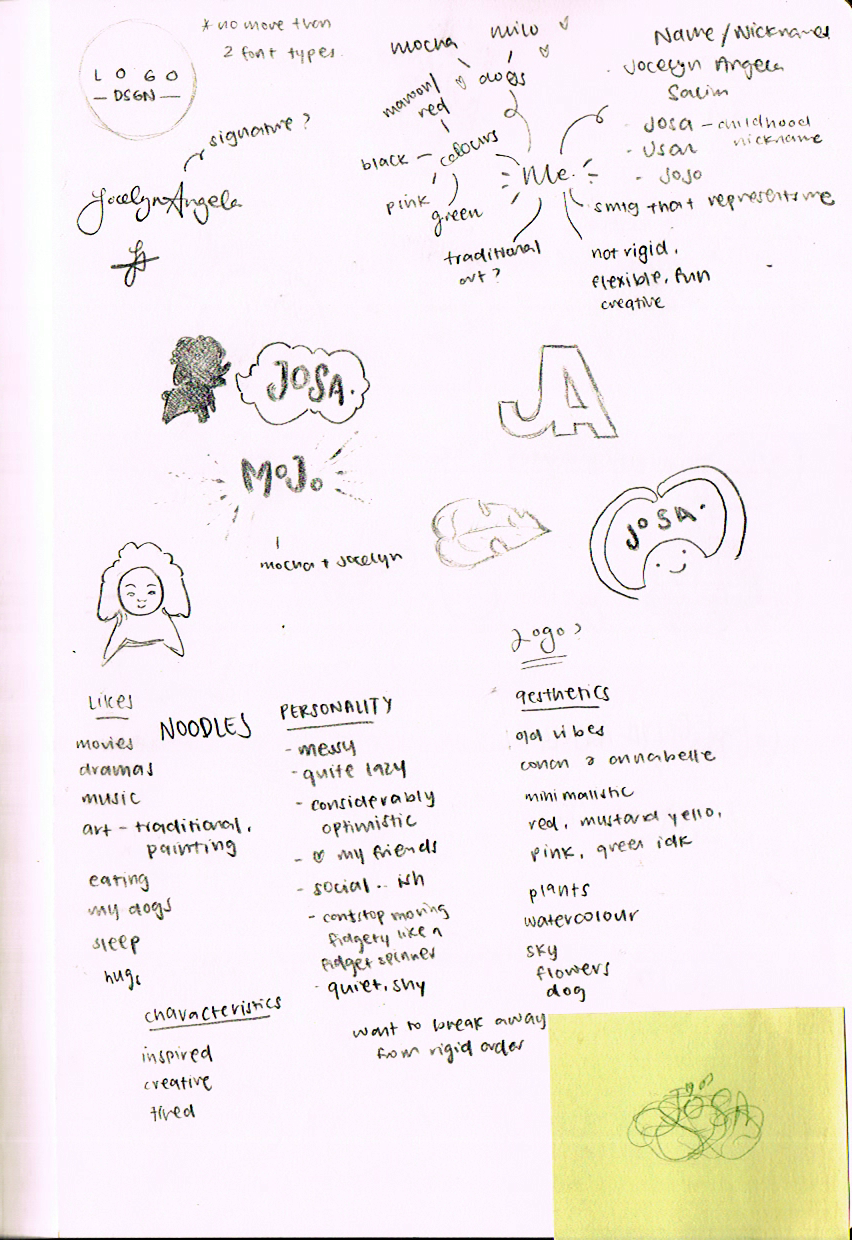 LOGO
— DSGN —
* no more than
2 font types.
signature?
Jocelyn Angela
JA
mocha
milo
dogs
maroon/
red
black
colours
pink
green
Me
traditional
art?
not rigid,
flexible, fun
creative
Name/Nicknames
Jocelyn Angela
Salim
- JOSA — childhood
nickname
- Usan
- JoJo
smtg that represents me
JOSA.
JA
MoJo
mocha + Jocelyn
JOSA.
Logo?
Likes
movies
dramas
music
art - traditional,
painting
eating
my dogs
sleep
hugs
NOODLES
PERSONALITY
- messy
- quite lazy
- considerably
optimistic
- ♡ my friends
- social.. ish
- contstop moving
fidgety like a
fidget spinner
- quiet, shy
aesthetics
old vibes
conan & annabelle
minimalistic
red, mustard yello,
pink, green idk
plants
watercolour
sky
flowers
dog
characteristics
inspired
creative
tired
want to break away
from rigid order
JOSA